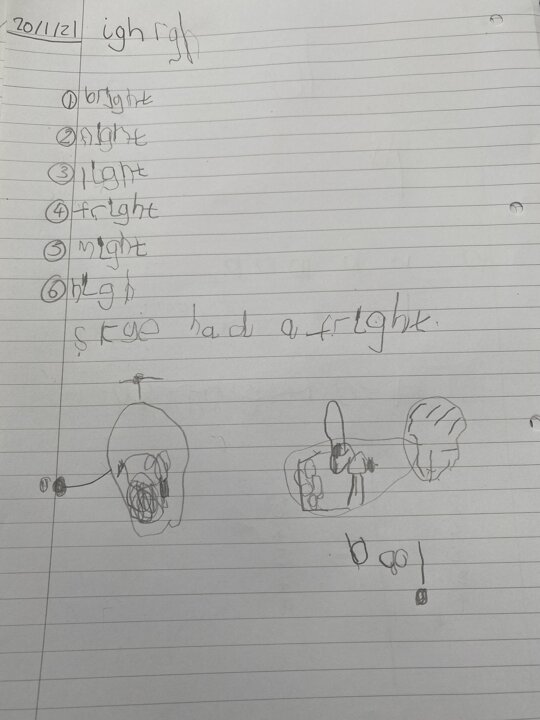 20/1/21 igh righ
① bright
② night
③ light
④ fright
⑤ might
⑥ high
had a fright.
boo!